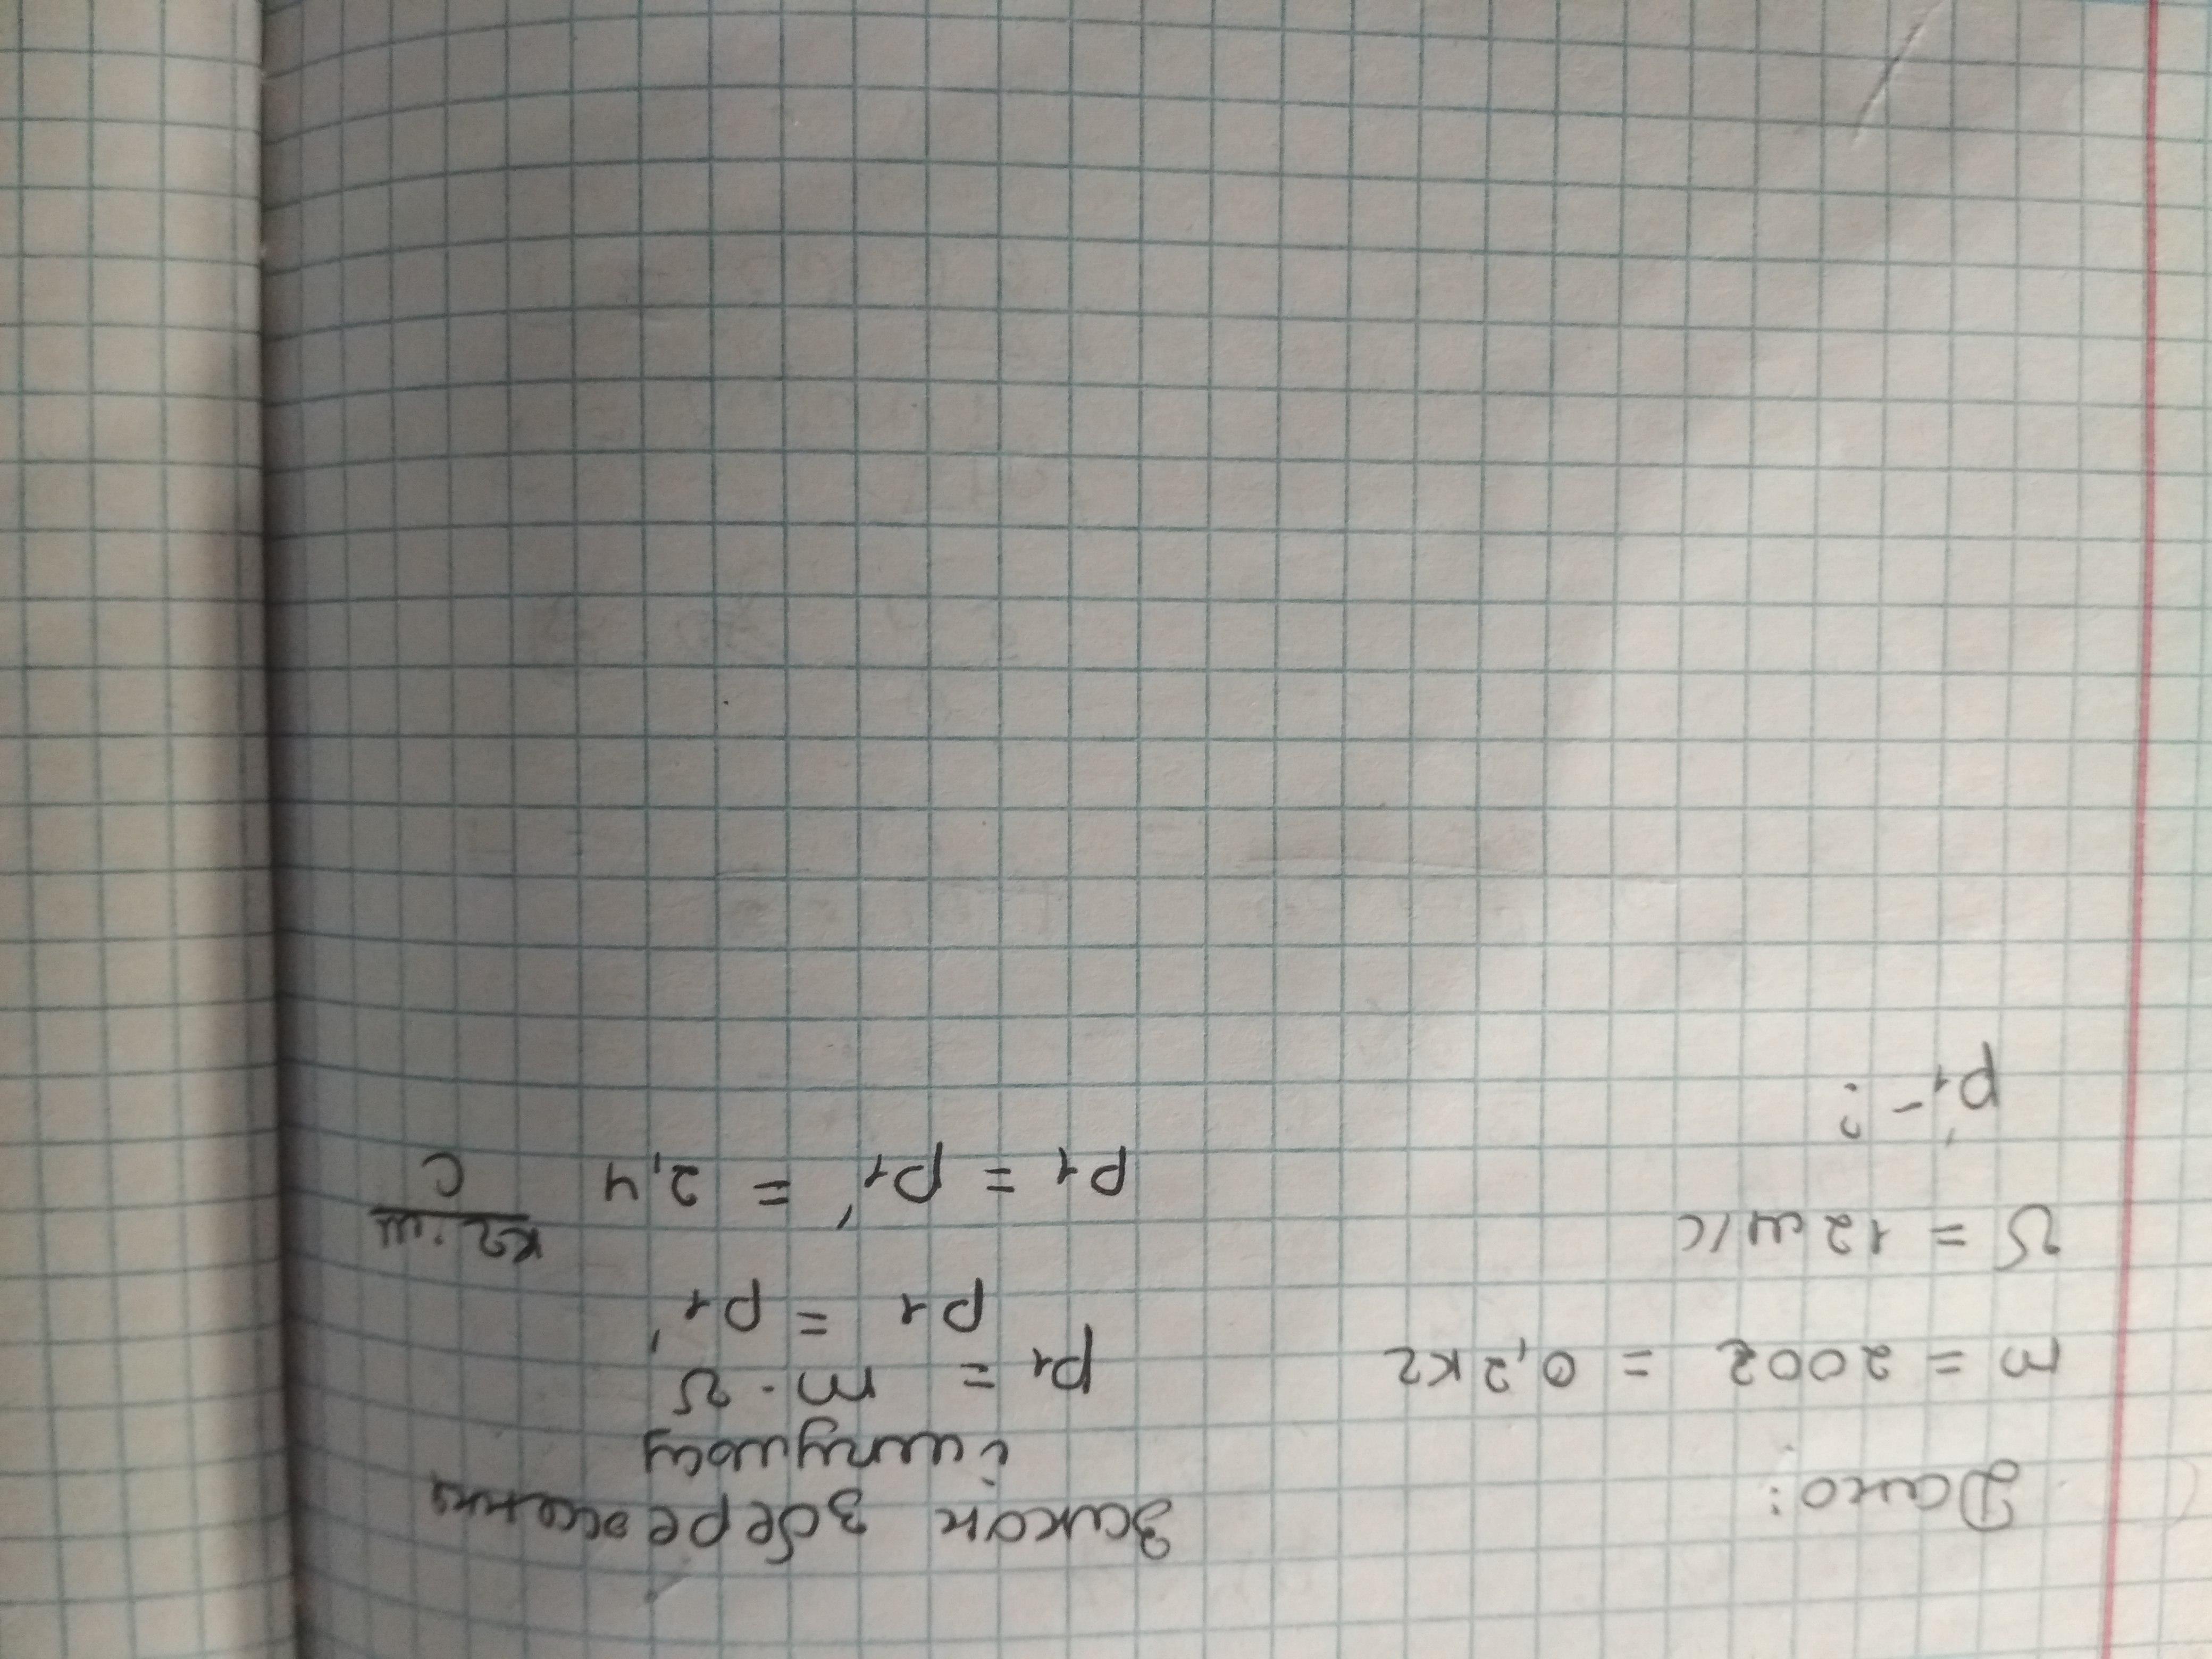 Дано:
m = 200г = 0,2кг
υ = 12 м/с
p₁' - ?
Закон збереження
імпульсу
p₁ = m · υ
p₁ = p₁'
p₁ = p₁' = 2,4 кг·м/с